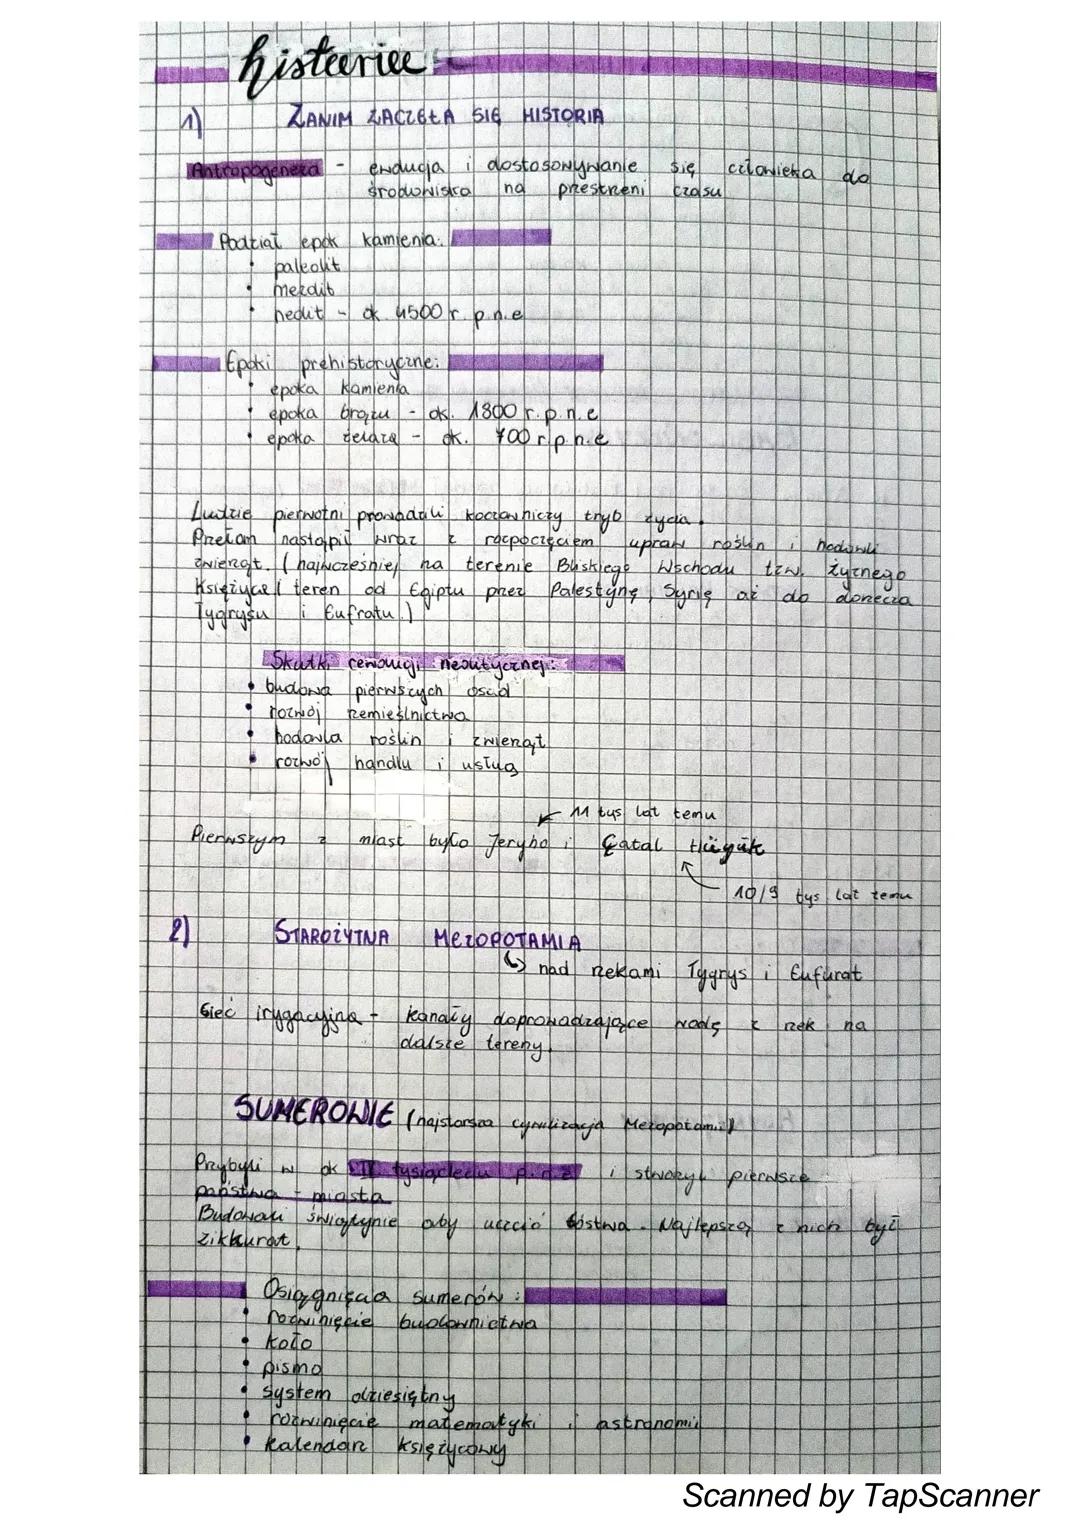 historiee
1) ZANIM ZACZĘŁA SIĘ HISTORIA
Antropogeneza - ewolucja i dostosowywanie się człowieka do
środowiska na przestrzeni czasu
Podział epok kamienia:
• paleolit
• mezolit
• neolit - ok 4500 r. p.n.e
Epoki prehistoryczne:
• epoka kamienia
• epoka brązu - ok. 1800 r. p.n.e
• epoka żelaza - ok. 700 r.p.n.e
Ludzie pierwotni prowadzili koczowniczy tryb życia.
Przełom nastąpił wraz z rozpoczęciem upraw roślin i hodowli
zwierząt. (najwcześniej na terenie Bliskiego Wschodu tzw. żyznego
Księżyca ( teren od Egiptu przez Palestynę, Syrię aż do dorzecza
Tygrysu i Eufratu.)
Skutki rewolucji neolitycznej:
• budowa pierwszych osad
• rozwój rzemieślnictwa
• hodowla roślin i zwierząt
• rozwój handlu i usług
11 tys lat temu
Pierwszym z miast było Jerycho i Çatal Hüyük
10/9 tys lat temu
2) STAROŻYTNA MEZOPOTAMIA
nad rzekami Tygrys i Eufurat
Sieć irygacyjna - kanały doprowadzające wodę z rzek na
dalsze tereny.
SUMEROWIE (najstarsza cywilizacja Mezopotamii)
Przybyli w ok IV tysiącleciu p.n.e i stworzyli pierwsze
państwa - miasta
Budowali świątynie aby uczcić bóstwa. Najlepszą z nich był
zikkurat.
Osiągnięcia sumerów:
• rozwinięcie budownictwa
• koło
• pismo
• system dziesiętny
• rozwinięcie matematyki i astronomii
• kalendarz księżycowy
Scanned by TapScanner